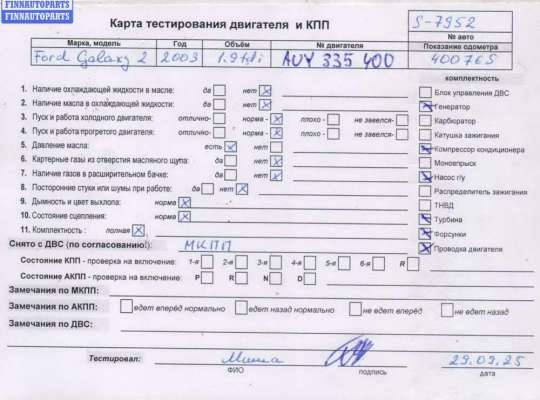 FINNAUTOPARTS
FINNAUTOPARTS
Карта тестирования двигателя и КПП
S-7952
№ авто
Марка, модель Год Объём № двигателя Показание одометра
Ford Galaxy 2 2003 1.9 tdi AUY 335 400 400765
комплектность
1. Наличие охлаждающей жидкости в масле: да нет x
2. Наличие масла в охлаждающей жидкости: да нет x
3. Пуск и работа холодного двигателя: отлично- норма - x плохо - не завелся-
4. Пуск и работа прогретого двигателя: отлично- норма - x плохо - не завелся-
5. Давление масла: есть x нет
6. Картерные газы из отверстия масляного щупа: да нет x
7. Наличие газов в расширительном бачке: да нет x
8. Посторонние стуки или шумы при работе: да нет x
9. Дымность и цвет выхлопа: норма x
10. Состояние сцепления: норма x
11. Комплектность : полная x
Блок управления ДВС
x Генератор
Карбюратор
Катушка зажигания
x Компрессор кондиционера
Моновпрыск
x Насос г/у
Распределитель зажигания
ТНВД
x Турбина
x Форсунки
x Проводка двигателя
Снято с ДВС (по согласованию): МКПП
Состояние КПП - проверка на включение: 1-я 2-я 3-я 4-я 5-я 6-я R
Состояние АКПП - проверка на включение: P R N D
Замечания по МКПП:
Замечания по АКПП: едет вперёд нормально едет назад нормально не едет вперёд не едет назад
Замечания по ДВС:
Тестировал: Миша 29.09.25
ФИО подпись дата